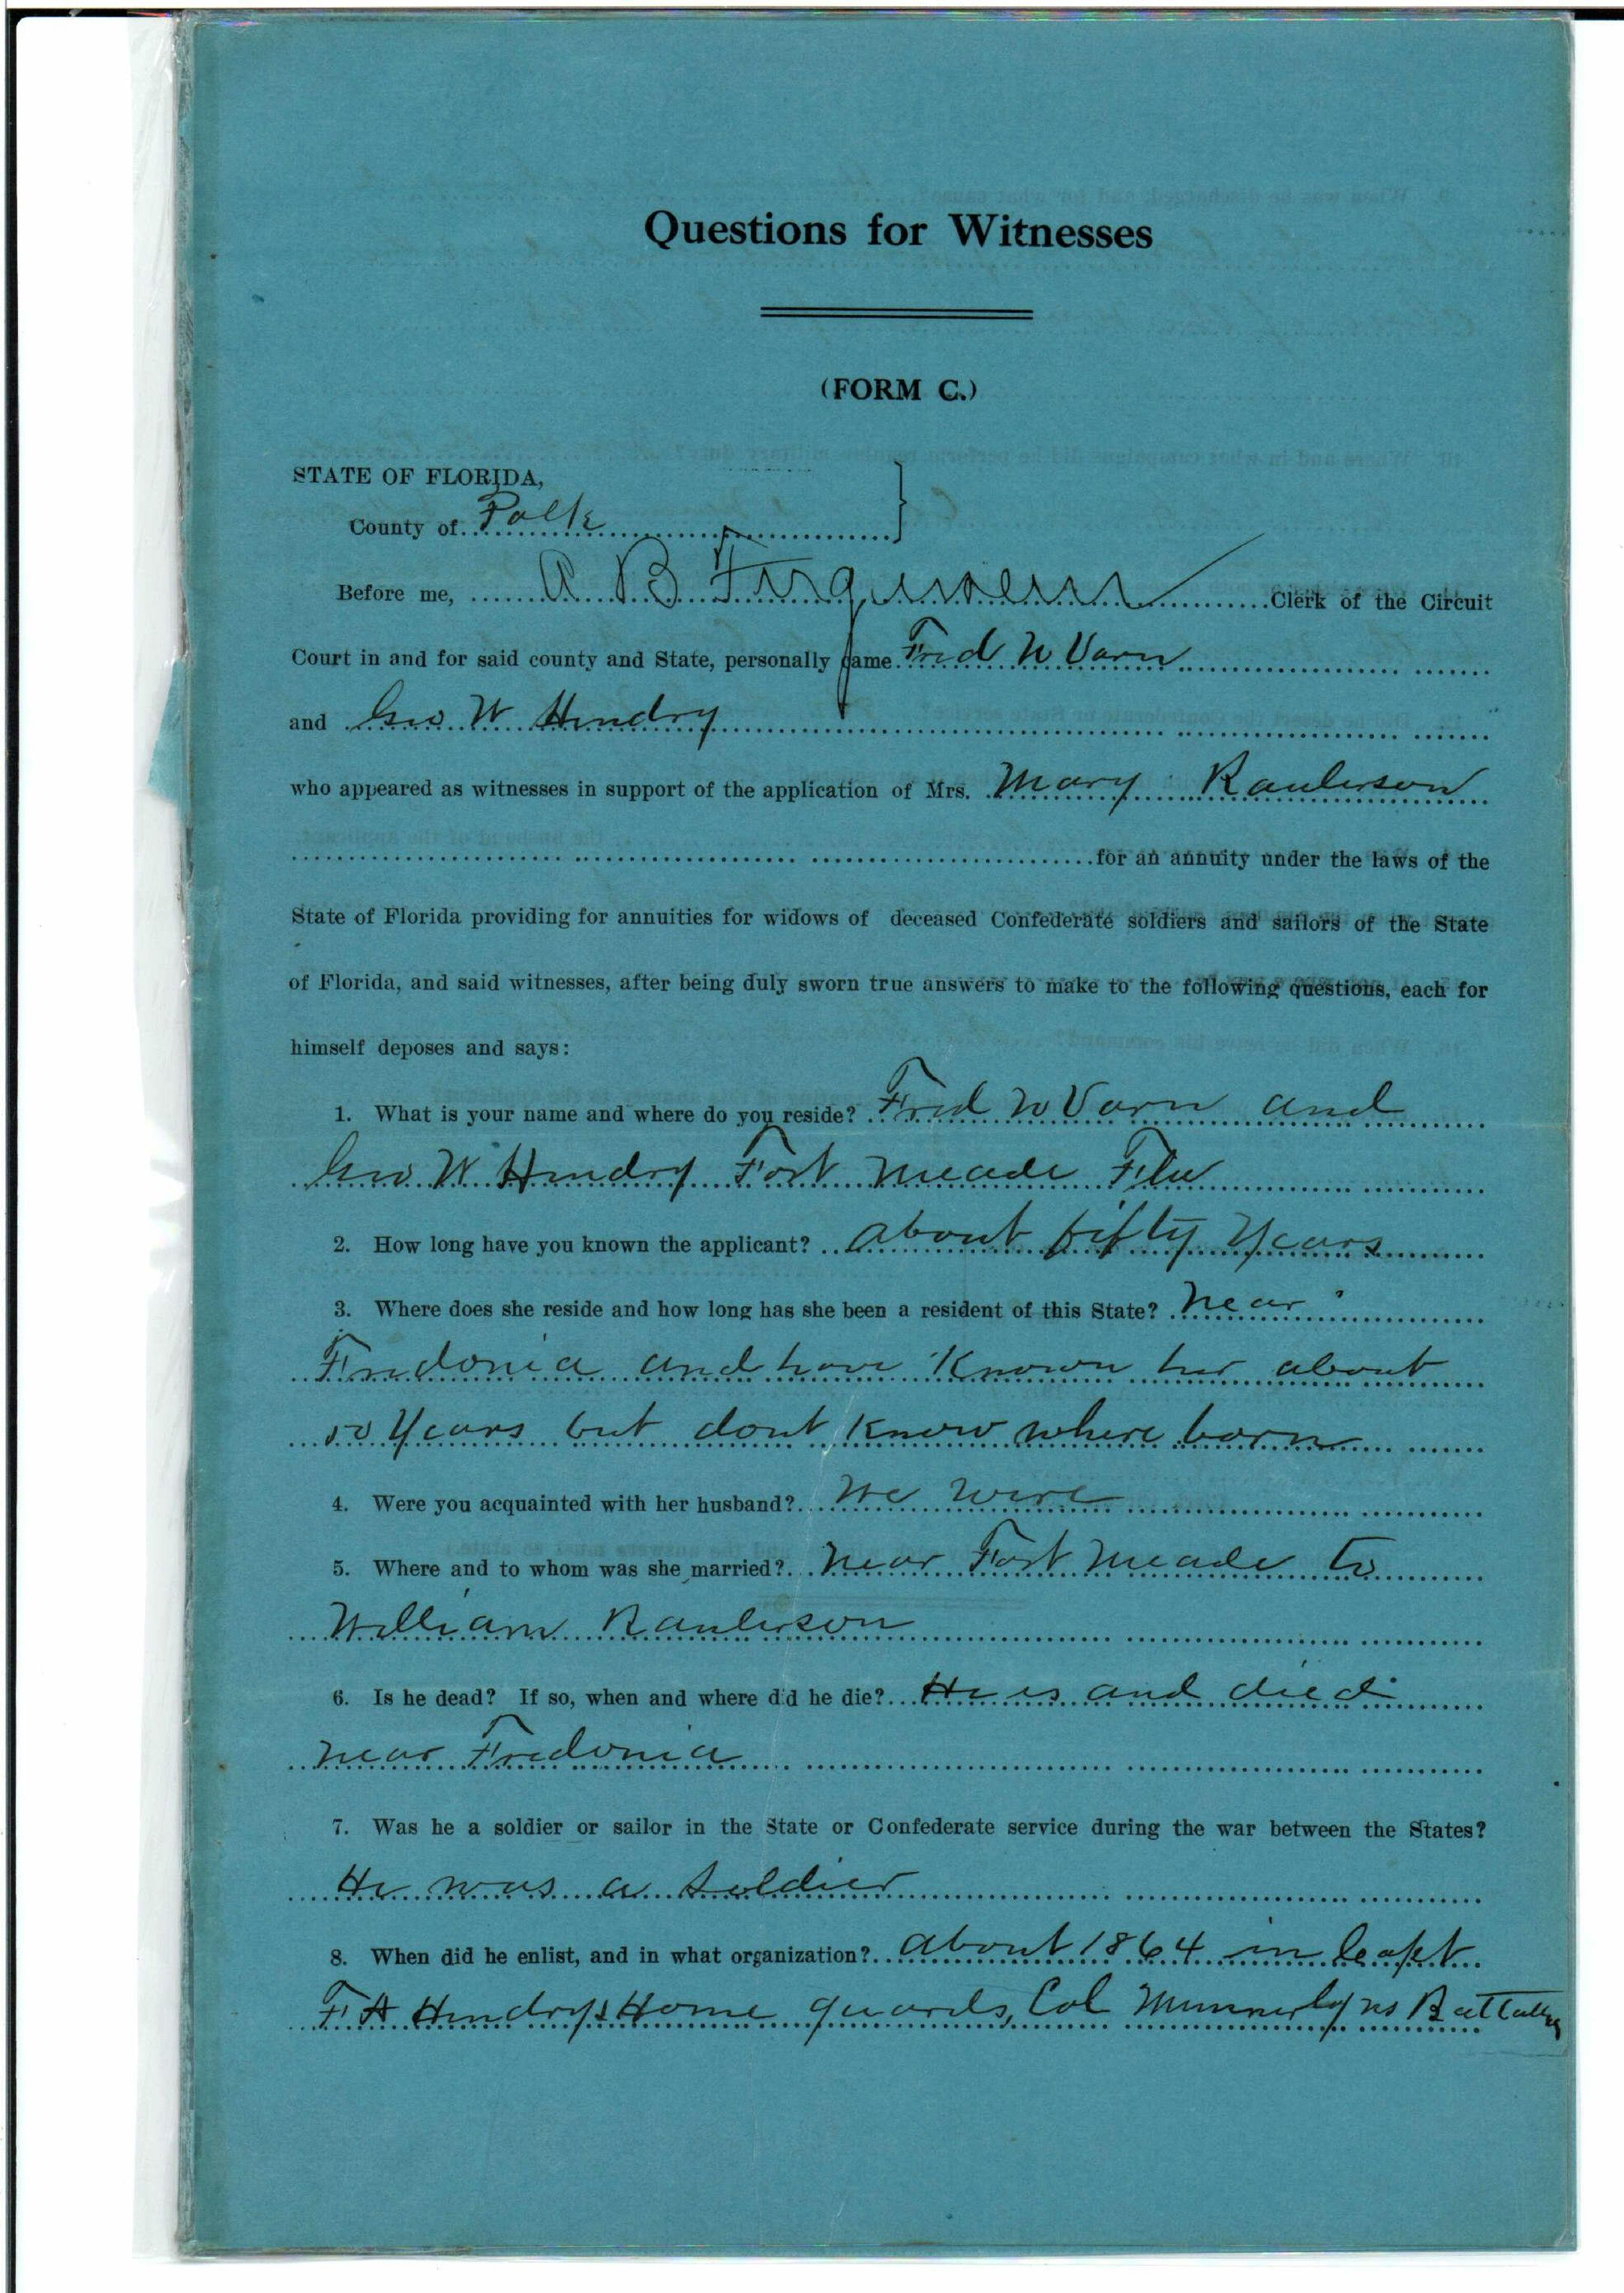 Questions for Witnesses
(FORM C.)
STATE OF FLORIDA,
County of Polk
Before me, A B Ferguson Clerk of the Circuit
Court in and for said county and State, personally came Fred N Varn
and Geo W Hendry
who appeared as witnesses in support of the application of Mrs. Mary Raulerson
for an annuity under the laws of the
State of Florida providing for annuities for widows of deceased Confederate soldiers and sailors of the State
of Florida, and said witnesses, after being duly sworn true answers to make to the following questions, each for
himself deposes and says:
1. What is your name and where do you reside? Fred N Varn and
Geo W Hendry Fort Meade Fla
2. How long have you known the applicant? about fifty Years
3. Where does she reside and how long has she been a resident of this State? Near
Fredonia and have Known her about
50 Years but dont Know where born
4. Were you acquainted with her husband? We were
5. Where and to whom was she married? Near Fort Meade to
William Raulerson
6. Is he dead? If so, when and where did he die? He is and died
near Fredonia
7. Was he a soldier or sailor in the State or Confederate service during the war between the States?
He was a Soldier
8. When did he enlist, and in what organization? about 1864 in Capt
F A Hendrys Home guards, Col Munnerlyns Battalion